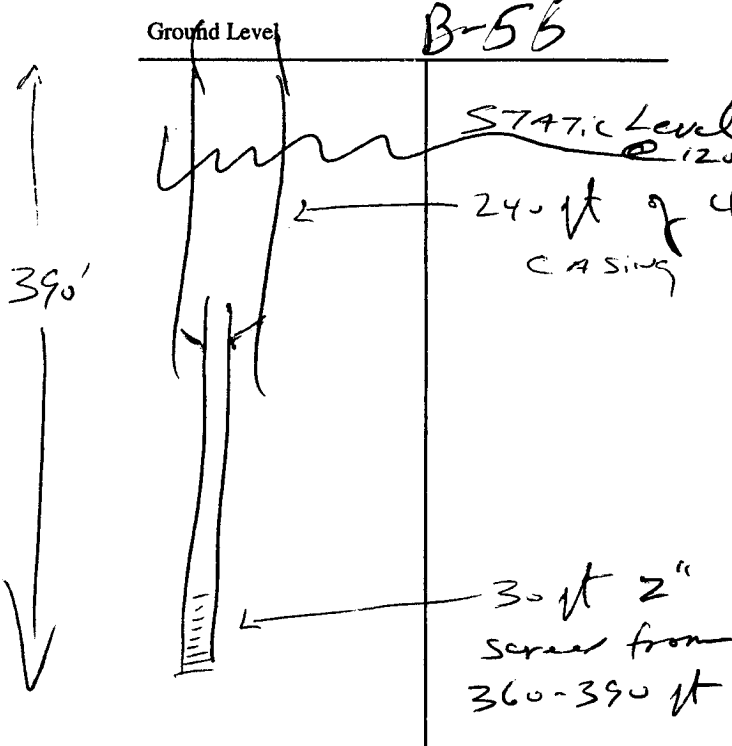 Ground Level
B-56
STATIC Level
@ 120
240 ft of 4
CASING
390'
30 ft 2"
screen from
360-390 ft